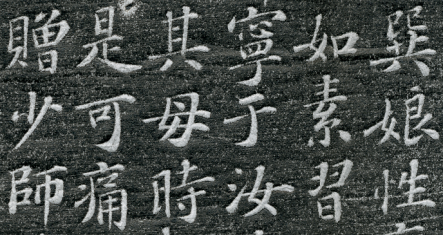 巽娘性
如素習
寧于汝
其毋時
是可痛
贈少師